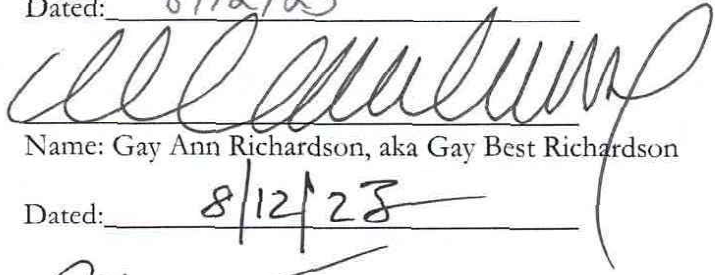 Dated: 8/12/23
Name: Gay Ann Richardson, aka Gay Best Richardson
Dated: 8/12/23